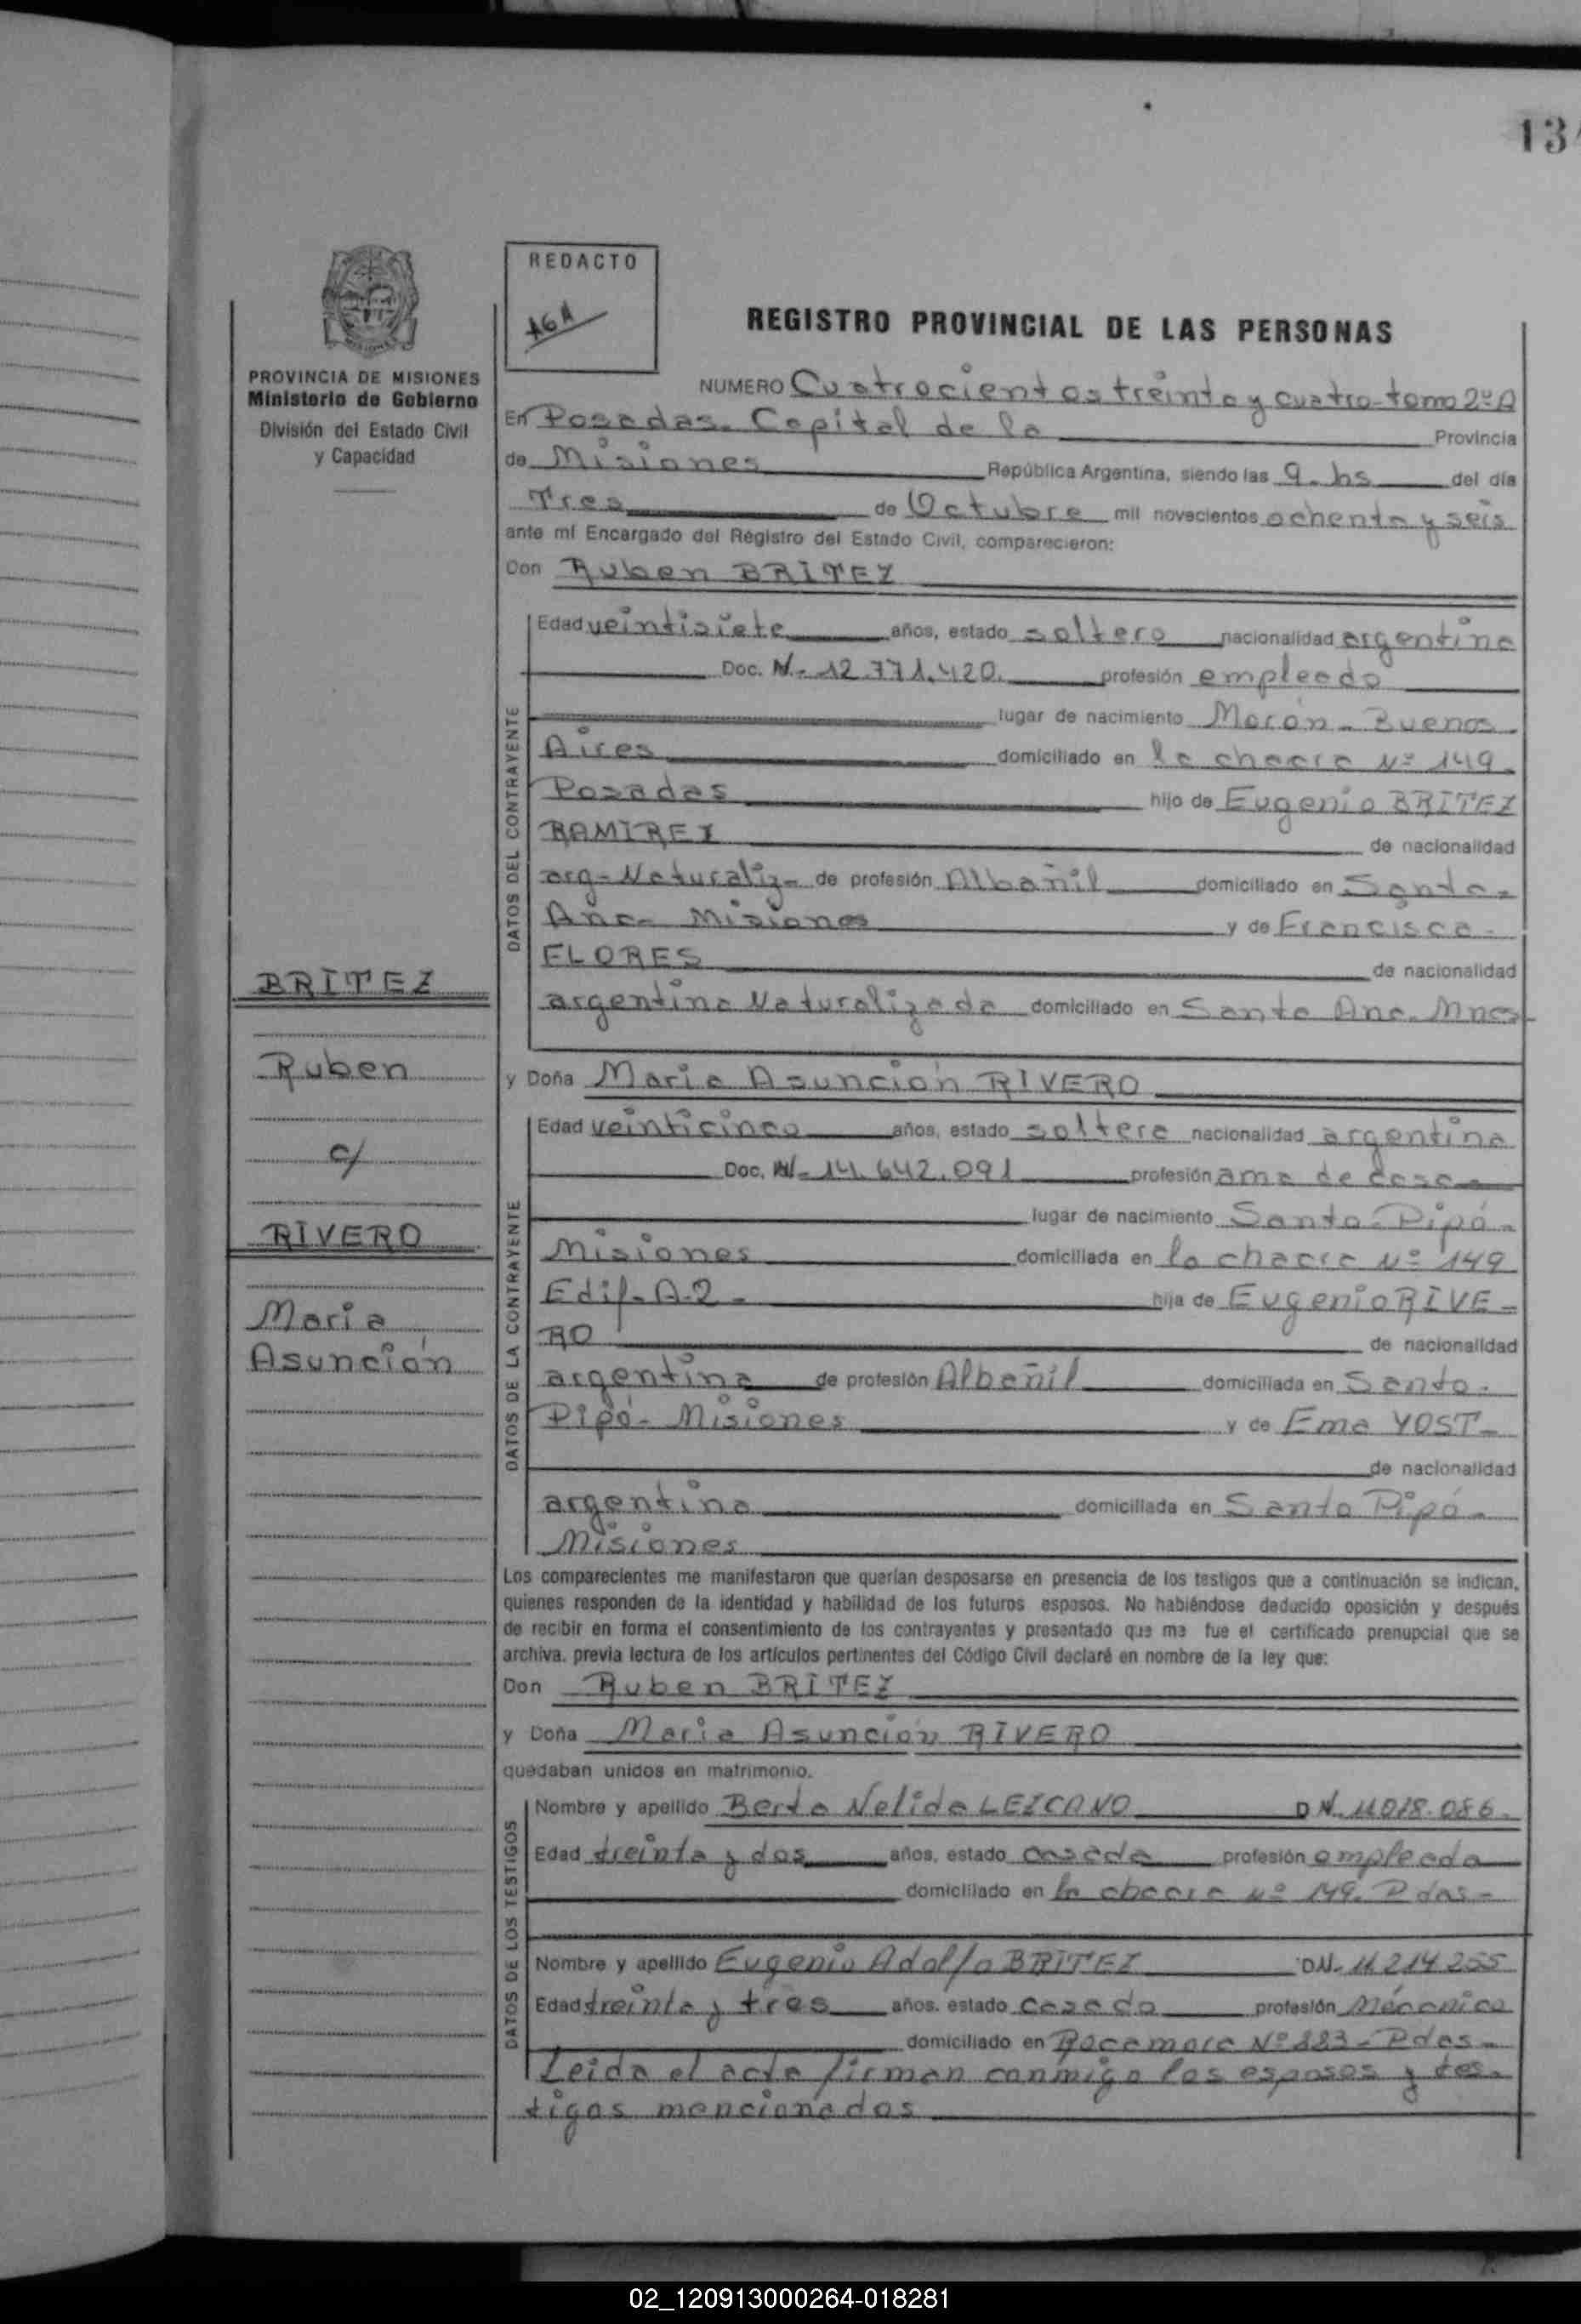 134
REDACTO
AGA
PROVINCIA DE MISIONES
Ministerio de Gobierno
División del Estado Civil
y Capacidad
REGISTRO PROVINCIAL DE LAS PERSONAS
NUMERO Cuatrocientos treinta y cuatro-tomo 2º A
En Posadas. Capital de la Provincia
de Misiones República Argentina, siendo las 9. hs del día
Tres de Octubre mil novecientos ochenta y seis
ante mí Encargado del Registro del Estado Civil, comparecieron:
Don Ruben BRITEZ
DATOS DEL CONTRAYENTE
Edad veintisiete años, estado soltero nacionalidad argentina
Doc. N- 12.771.420. profesión empleado
lugar de nacimiento Morón - Buenos
Aires domiciliado en la chacra Nº 149.
Posadas hijo de Eugenio BRITEZ
RAMIREZ de nacionalidad
arg-Naturaliz- de profesión Albañil domiciliado en Santa-
Ana- Misiones y de Francisca-
FLORES de nacionalidad
argentina Naturalizada domiciliado en Santa Ana. Mnes
y Doña Maria Asunción RIVERO
DATOS DE LA CONTRAYENTE
Edad veinticinco años, estado soltera nacionalidad argentina
Doc. N- 14.642.091 profesión ama de casa
lugar de nacimiento Santo-Pipó-
Misiones domiciliada en la chacra Nº 149
Edif-A-2- hija de Eugenio RIVE-
RO de nacionalidad
argentina de profesión Albañil domiciliada en Santo-
Pipó- Misiones y de Ema YOST-
de nacionalidad
argentina domiciliada en Santo Pipó-
Misiones
Los comparecientes me manifestaron que querían desposarse en presencia de los testigos que a continuación se indican,
quienes responden de la identidad y habilidad de los futuros esposos. No habiéndose deducido oposición y después
de recibir en forma el consentimiento de los contrayentes y presentado que me fue el certificado prenupcial que se
archiva. previa lectura de los artículos pertinentes del Código Civil declaré en nombre de la ley que:
Don Ruben BRITEZ
y Doña Maria Asunción RIVERO
quedaban unidos en matrimonio.
DATOS DE LOS TESTIGOS
Nombre y apellido Berta Nelida LEZCANO D N. 11.018.086.
Edad treinta y dos años, estado casada profesión empleada
domiciliado en la chacra Nº 149. Pdas-
Nombre y apellido Eugenio Adolfo BRITEZ DN. 11.214.255
Edad treinta y tres años. estado casado profesión Mécanico
domiciliado en Rocamora Nº 223 - Pdas-
Leida el acta firman conmigo los esposos y tes-
tigos mencionados
BRITEZ
Ruben
c/
RIVERO
Maria
Asunción
02_120913000264-018281